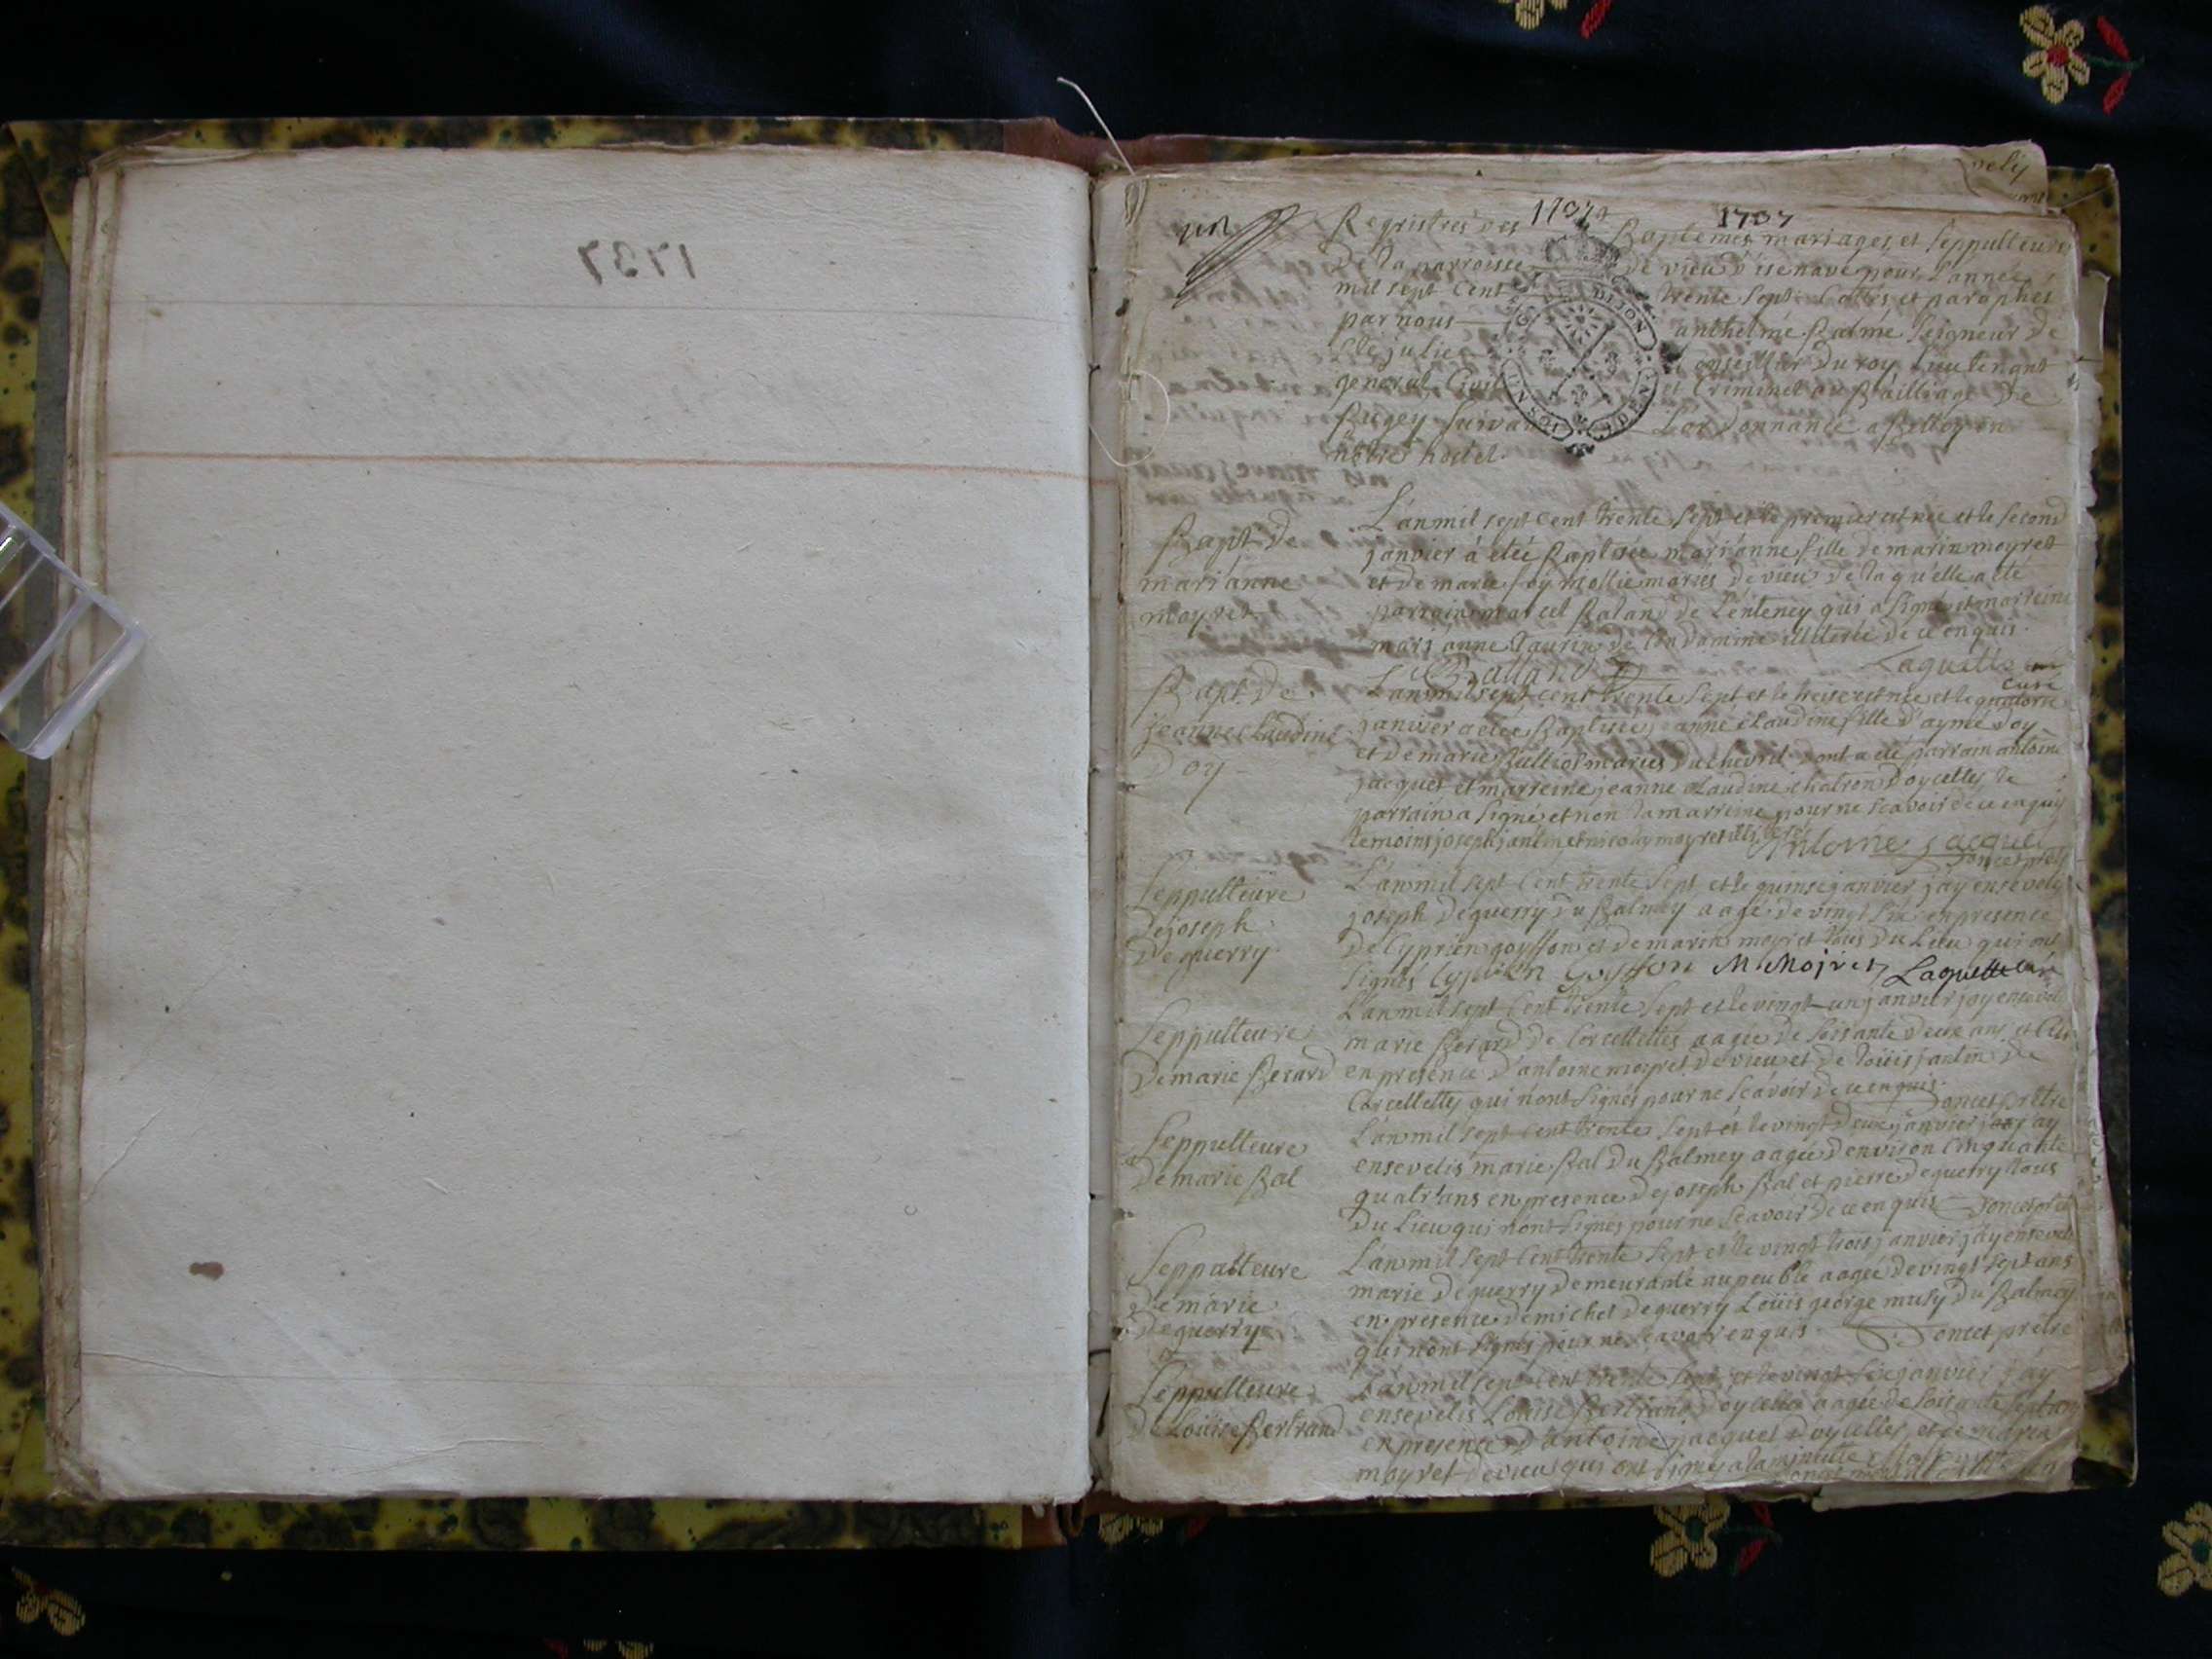 1737
1737
1737
Regristres des Baptemes, mariages, et seppulteures
de la parroisse de vieu d'isenave pour l'année
mil sept cent trente sept. Cottés et paraphés
par nous anthelme Balme seigneur de
Ste julie Conseiller du roy Lieutenant
general Civil et Criminel au Bailliage de
Bugey suivant L'ordonnance a Belley en
nôtre hostel.
Bapt de
mari'anne
moyret
L'an mil sept cent trente sept et le premier est née et le second
janvier à etée Baptisée mari'anne fille de marin moyret
et de marie foy mariés de vieu de laquelle a eté
parrain marcel Baland de Lenteney qui a signé et marreine
mari'anne taurin de Condamine illiterée de ce enquis.
Balland Laguette curé
Bapt. de
jeanne Claudine
Doy
L'an mil sept cent trente sept et le treise est née et le quatorse
janvier a etée Baptisée jeanne claudine fille d'aymé Doy
et de marie mariés du chevril dont a eté parrain antoine
jacquet et marreine jeanne claudine chatron d'oyselles le
parrain a signé et non la marreine pour ne scavoir de ce enquis
temoins joseph jantin et nicolay moyret illiterés Antoine jacquet
Doncet prêt
Seppulteure
de joseph
Deguerry
L'an mil sept Cent trente sept et le quinse janvier j'ay ensevely
joseph deguerry du Balmey aagé de vingt six en presence
de Cyprien goyffon et de marin moyret tous du Lieu qui ont
signés Cyprien goyffon M Mojret Laguette curé
Seppulteure
de marie Berard
L'an mil sept Cent trente sept et le vingt-un janvier j'ay ensevely
marie Berard de Corcellettes aagée de soisante deux ans et
en presence d'antoine moyret de vieu et de Loüis jantin de
Corcellettes qui n'ont signés pour ne scavoir de ce enquis. Doncet prêtre
Seppulteure
de marie Bal
L'an mil sept cent trente sept et le vingt deux janvier j'ay
ensevelis marie Bal du Balmey aagée d'environ Cinquante
quatr'ans en presence de joseph Bal et pierre deguerry tous
du Lieu qui n'ont signés pour ne scavoir de ce enquis Doncet prêt
Seppulteure
de marie
deguerry
L'an mil sept Cent trente sept et le vingt trois janvier j'ay ensevely
marie deguerry demeurante au peuble aagée de vingt sept ans
en presence de michel deguerry Loüis george musy du Balmey
qui n'ont signés pour ne scavoir enquis. Doncet prêtre
Seppulteure
de Loüise Bertrand
L'an mil sept Cent trente sept et le vingt six janvier j'ay
ensevelis Loüise Bertrand d'oyselles aagée de soisante sept ans
en presence d'antoine jacquet d'oyselles et de marin
moyret de vieu qui ont signés a la minutte